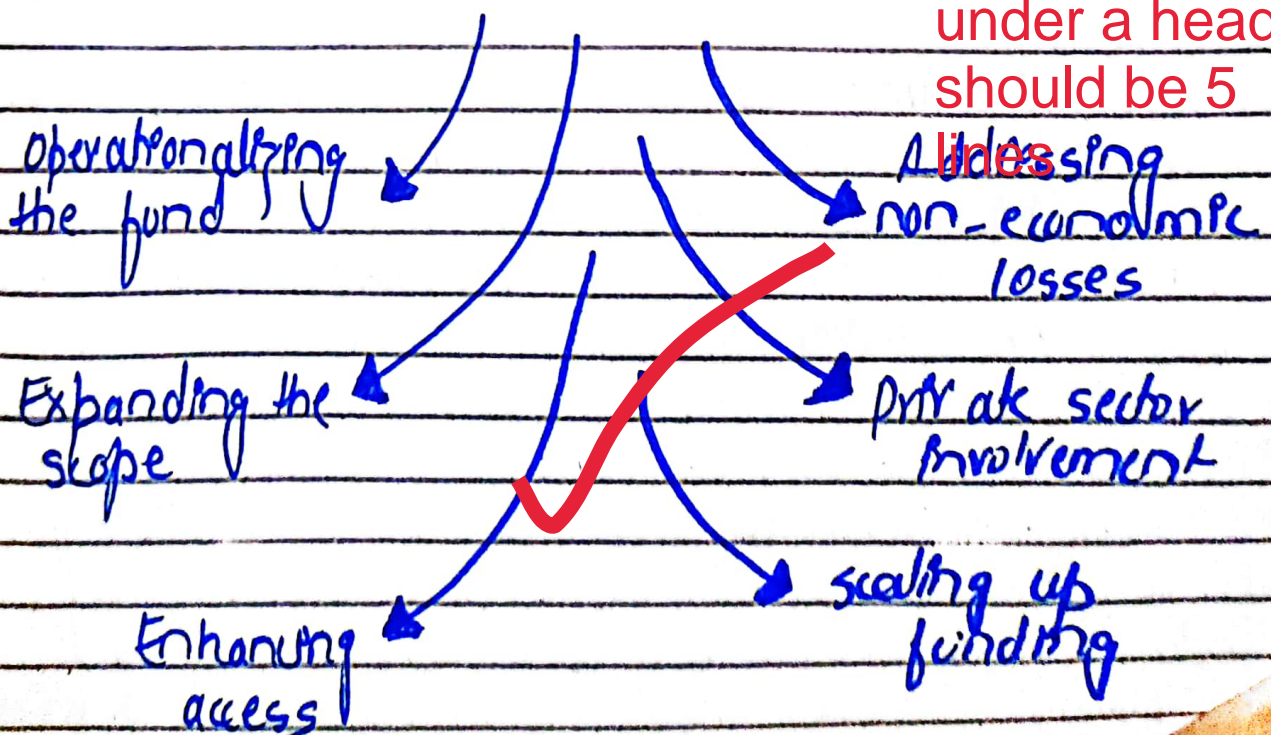 under a head
should be 5
lines
Operationalizing
the fund
Addressing
non-economic
losses
Expanding the
scope
Private sector
involvement
Enhancing
access
scaling up
funding